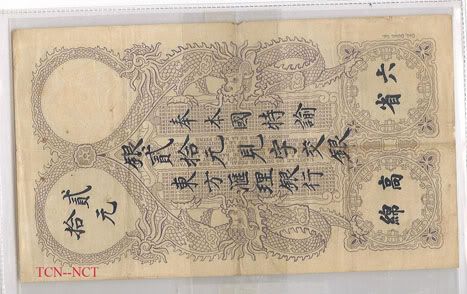 六省
奉本國特諭
銀貳拾元見字交銀
東方滙理銀行
高綿
貳拾元
TCN--NCT